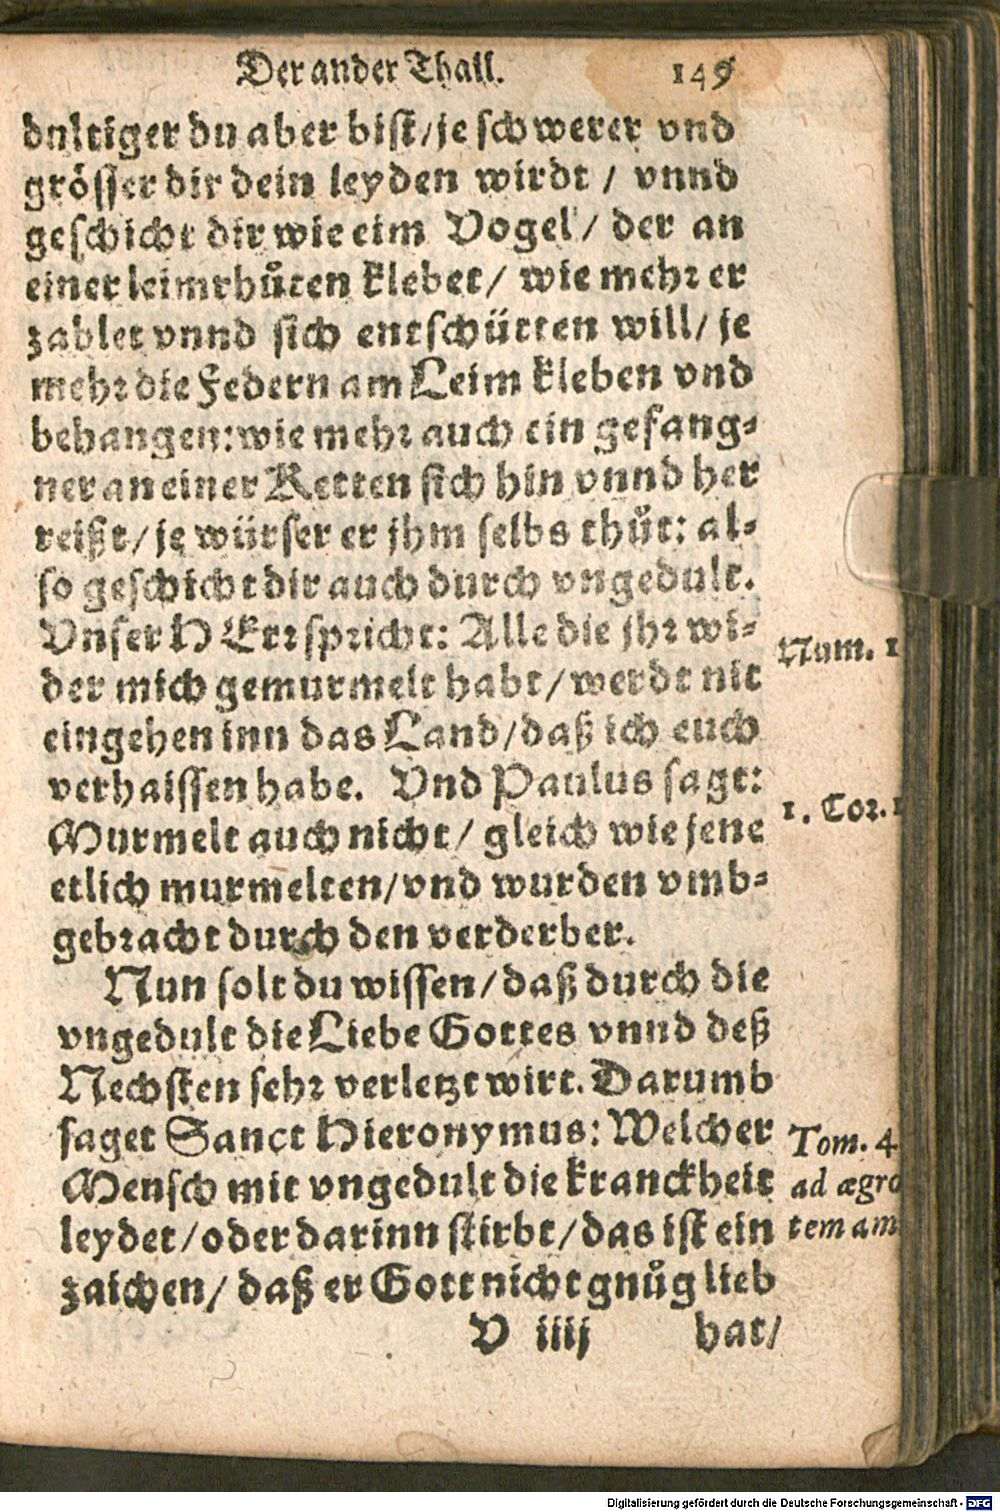 Der ander Thail. 149
dultiger du aber bist / je schwerer vnd
grösser dir dein leyden wirdt / vnnd
geschicht dir wie eim Vogel / der an
einer leimrhůten klebet / wie mehr er
zablet vnnd sich entschütten will / je
mehr die Federn am Leim kleben vnd
behangen: wie mehr auch ein gefang⸗
ner an einer Ketten sich hin vnnd her
reißt / je würser er jhm selbs thůt: al⸗
so geschicht dir auch durch vngedult.
Vnser HErr spricht: Alle die jhr wi⸗
der mich gemurmelt habt / werdt nit
eingehen inn das Land / daß ich euch
verhaissen habe. Vnd Paulus sagt:
Murmelt auch nicht / gleich wie jene
etlich murmelten / vnd wurden vmb⸗
gebracht durch den verderber.
Nun solt du wissen / daß durch die
vngedult die Liebe Gottes vnnd deß
Nechsten sehr verletzt wirt. Darumb
saget Sanct Hieronymus: Welcher
Mensch mit vngedult die kranckheit
leydet / oder darinn stirbt / das ist ein
zaichen / daß er Gott nicht gnůg lieb
V iiij hat /
Num. 1
1. Cor. 1
Tom. 4
ad ægro
tem am
Digitalisierung gefördert durch die Deutsche Forschungsgemeinschaft - DFG